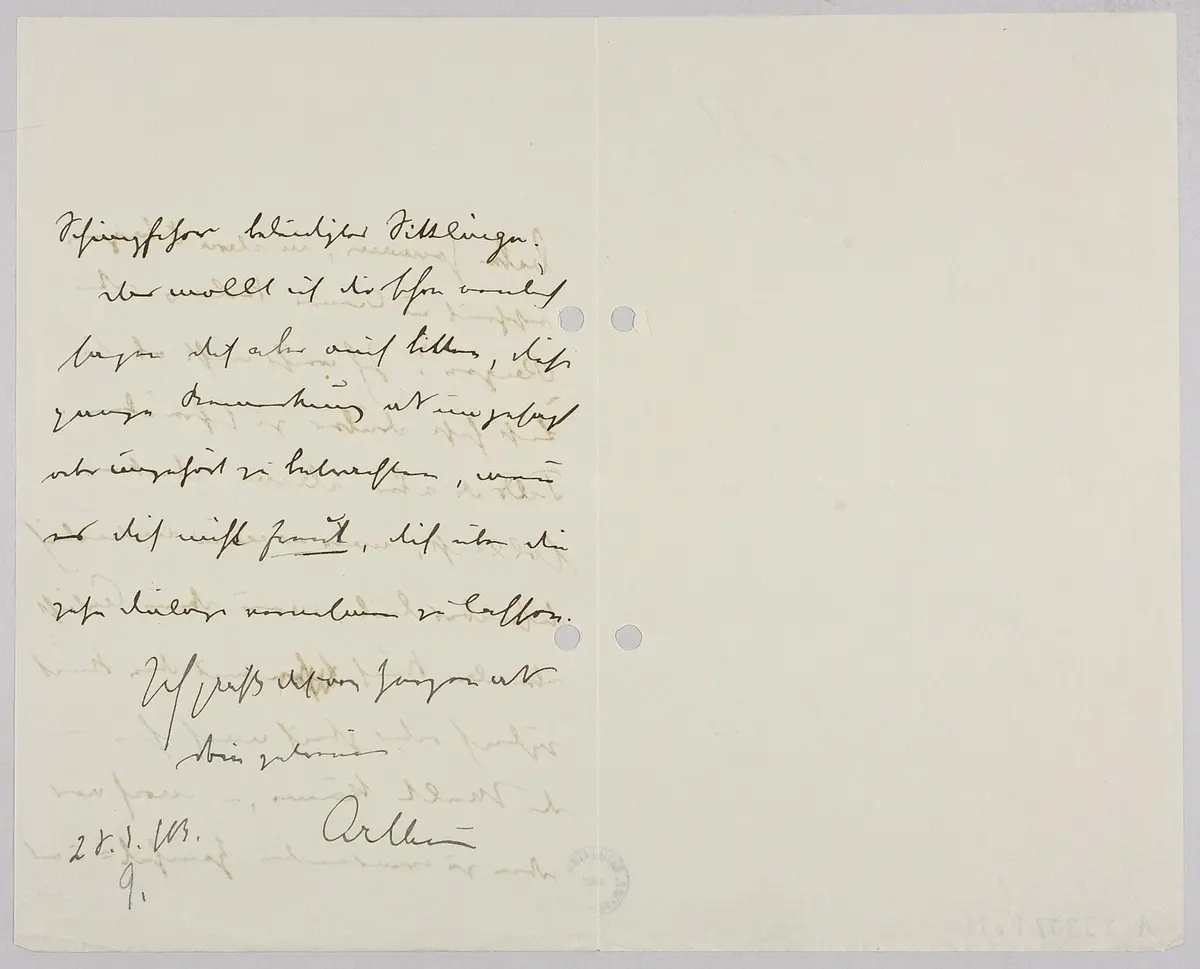 Schimpfchor beleidigter Sittlinge.
Das wollt ich dir schon neulich
sagen dich aber auch bitten, diese
ganze Bemerkung als ungesagt
oder ungehört zu betrachten, wenn
es dich nicht freut, dich über die
zehn Dialoge vernehmen zu lassen.
Ich grüße dich von Herzen als
dein getreuer
Arthur
28. 3. 903.